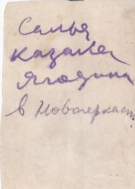 Семья
казака
Ягодина
в Новочеркасс